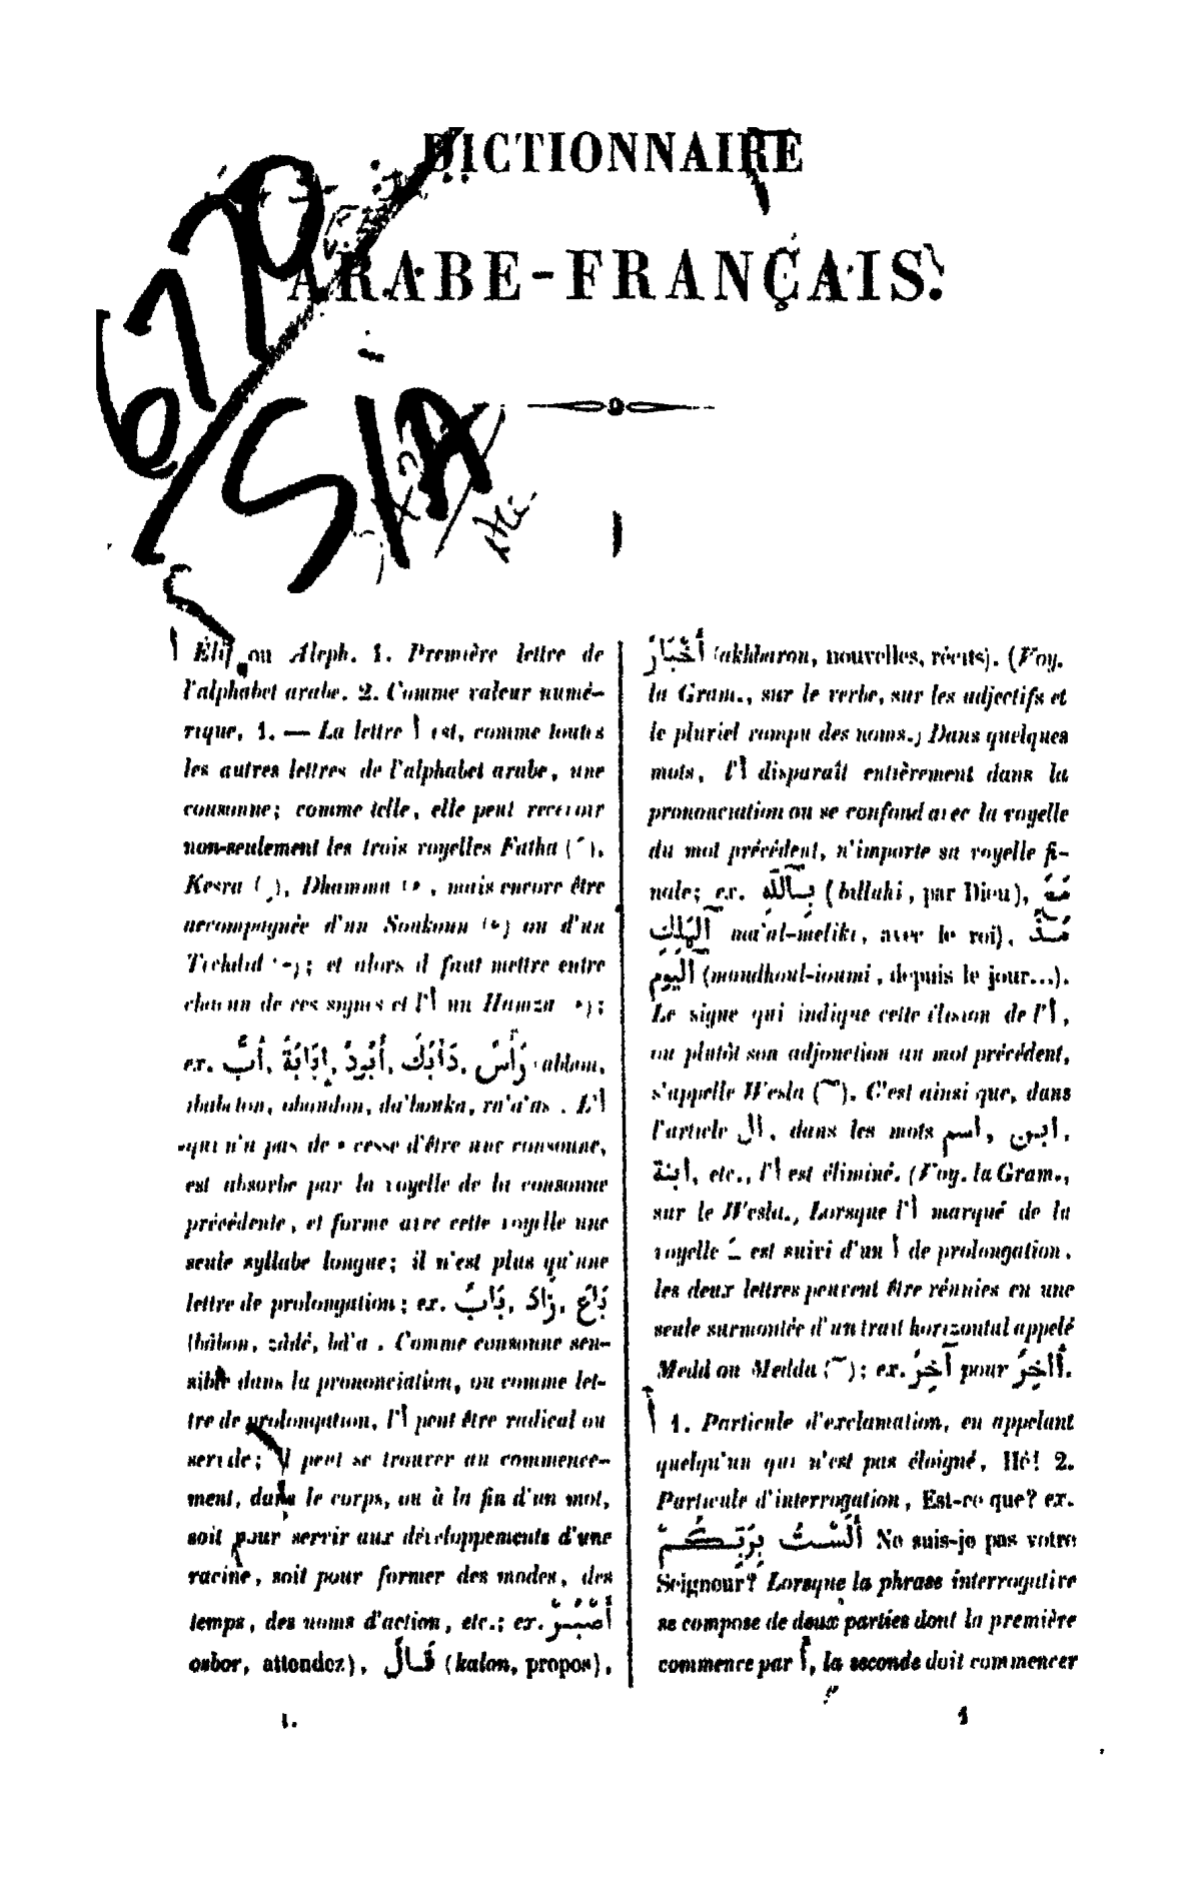 DICTIONNAIRE
ARABE-FRANÇAIS.
6770
S/A
ا
ا Élif ou Aleph. 1. Première lettre de
l'alphabet arabe. 2. Comme valeur numé-
rique, 1. — La lettre ا est, comme toutes
les autres lettres de l'alphabet arabe, une
consonne; comme telle, elle peut recevoir
non-seulement les trois voyelles Fatha (َ),
Kesra (ِ), Dhamma (ُ, mais encore être
accompagnée d'un Soukoun (ْ) ou d'un
Techdid ّ); et alors il faut mettre entre
chacun de ces signes et l'ا un Hamza ء);
ex. أَبٌّ, إِبَابَةٌ, أُبُودٌ, دَأْبُكَ, رَأَّسَ
ababeton, oboudon, da'bouka, ra'a'as. L'ا
qui n'a pas de ء cesse d'être une consonne,
est absorbé par la voyelle de la consonne
précédente, et forme avec cette voyelle une
seule syllabe longue; il n'est plus qu'une
lettre de prolongation; ex. بَابٌ, زَادَ, بَاعَ
(bâbon, zâdé, bâ'a. Comme consonne sen-
sible dans la prononciation, ou comme let-
tre de prolongation, l'ا peut être radical ou
servile; il peut se trouver au commence-
ment, dans le corps, ou à la fin d'un mot,
soit pour servir aux développements d'une
racine, soit pour former des modes, des
temps, des noms d'action, etc.; ex. أُصْبُرْ
osbor, attendez), قَالٌ (kalon, propos),
أَخْبَارٌ (akhbaron, nouvelles, récits). (Voy.
la Gram., sur le verbe, sur les adjectifs et
le pluriel rompu des noms.) Dans quelques
mots, l'ا disparaît entièrement dans la
prononciation ou se confond avec la voyelle
du mot précédent, n'importe sa voyelle fi-
nale; ex. بِٱللّٰهِ (billahi, par Dieu), مَعَ
ٱلْمَلِكِ ma'al-meliki, avec le roi), مُنْذُ
ٱليوم (mondhoul-ioumi, depuis le jour...).
Le signe qui indique cette élision de l'ا,
ou plutôt son adjonction au mot précédent,
s'appelle Wesla (~). C'est ainsi que, dans
l'article ال, dans les mots اسم, ابن,
ابنة, etc., l'ا est éliminé. (Voy. la Gram.,
sur le Wesla.) Lorsque l'ا marqué de la
voyelle َ est suivi d'un ا de prolongation,
les deux lettres peuvent être réunies en une
seule surmontée d'un trait horizontal appelé
Medd ou Medda (~); ex. آخِرُ pour أَاخِرُ.
أَ 1. Particule d'exclamation, en appelant
quelqu'un qui n'est pas éloigné, Hé! 2.
Particule d'interrogation, Est-ce que? ex.
أَلَسْتُ بِرَبِّكُمْ Ne suis-je pas votre
Seigneur? Lorsque la phrase interrogative
se compose de deux parties dont la première
commence par أ, la seconde doit commencer
I.
1